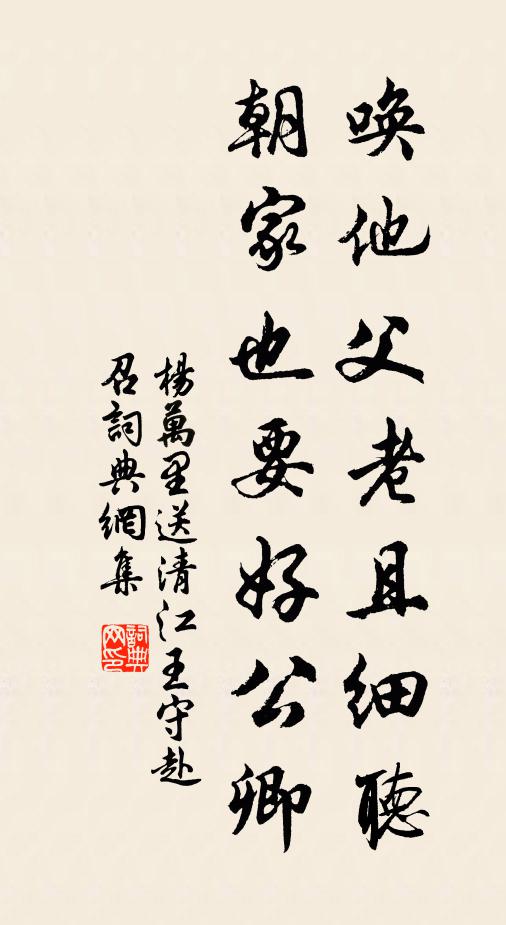 喚他父老且細聽
朝家也要好公卿
楊萬里送清江王守赴
召詞典網集
詞典
网印